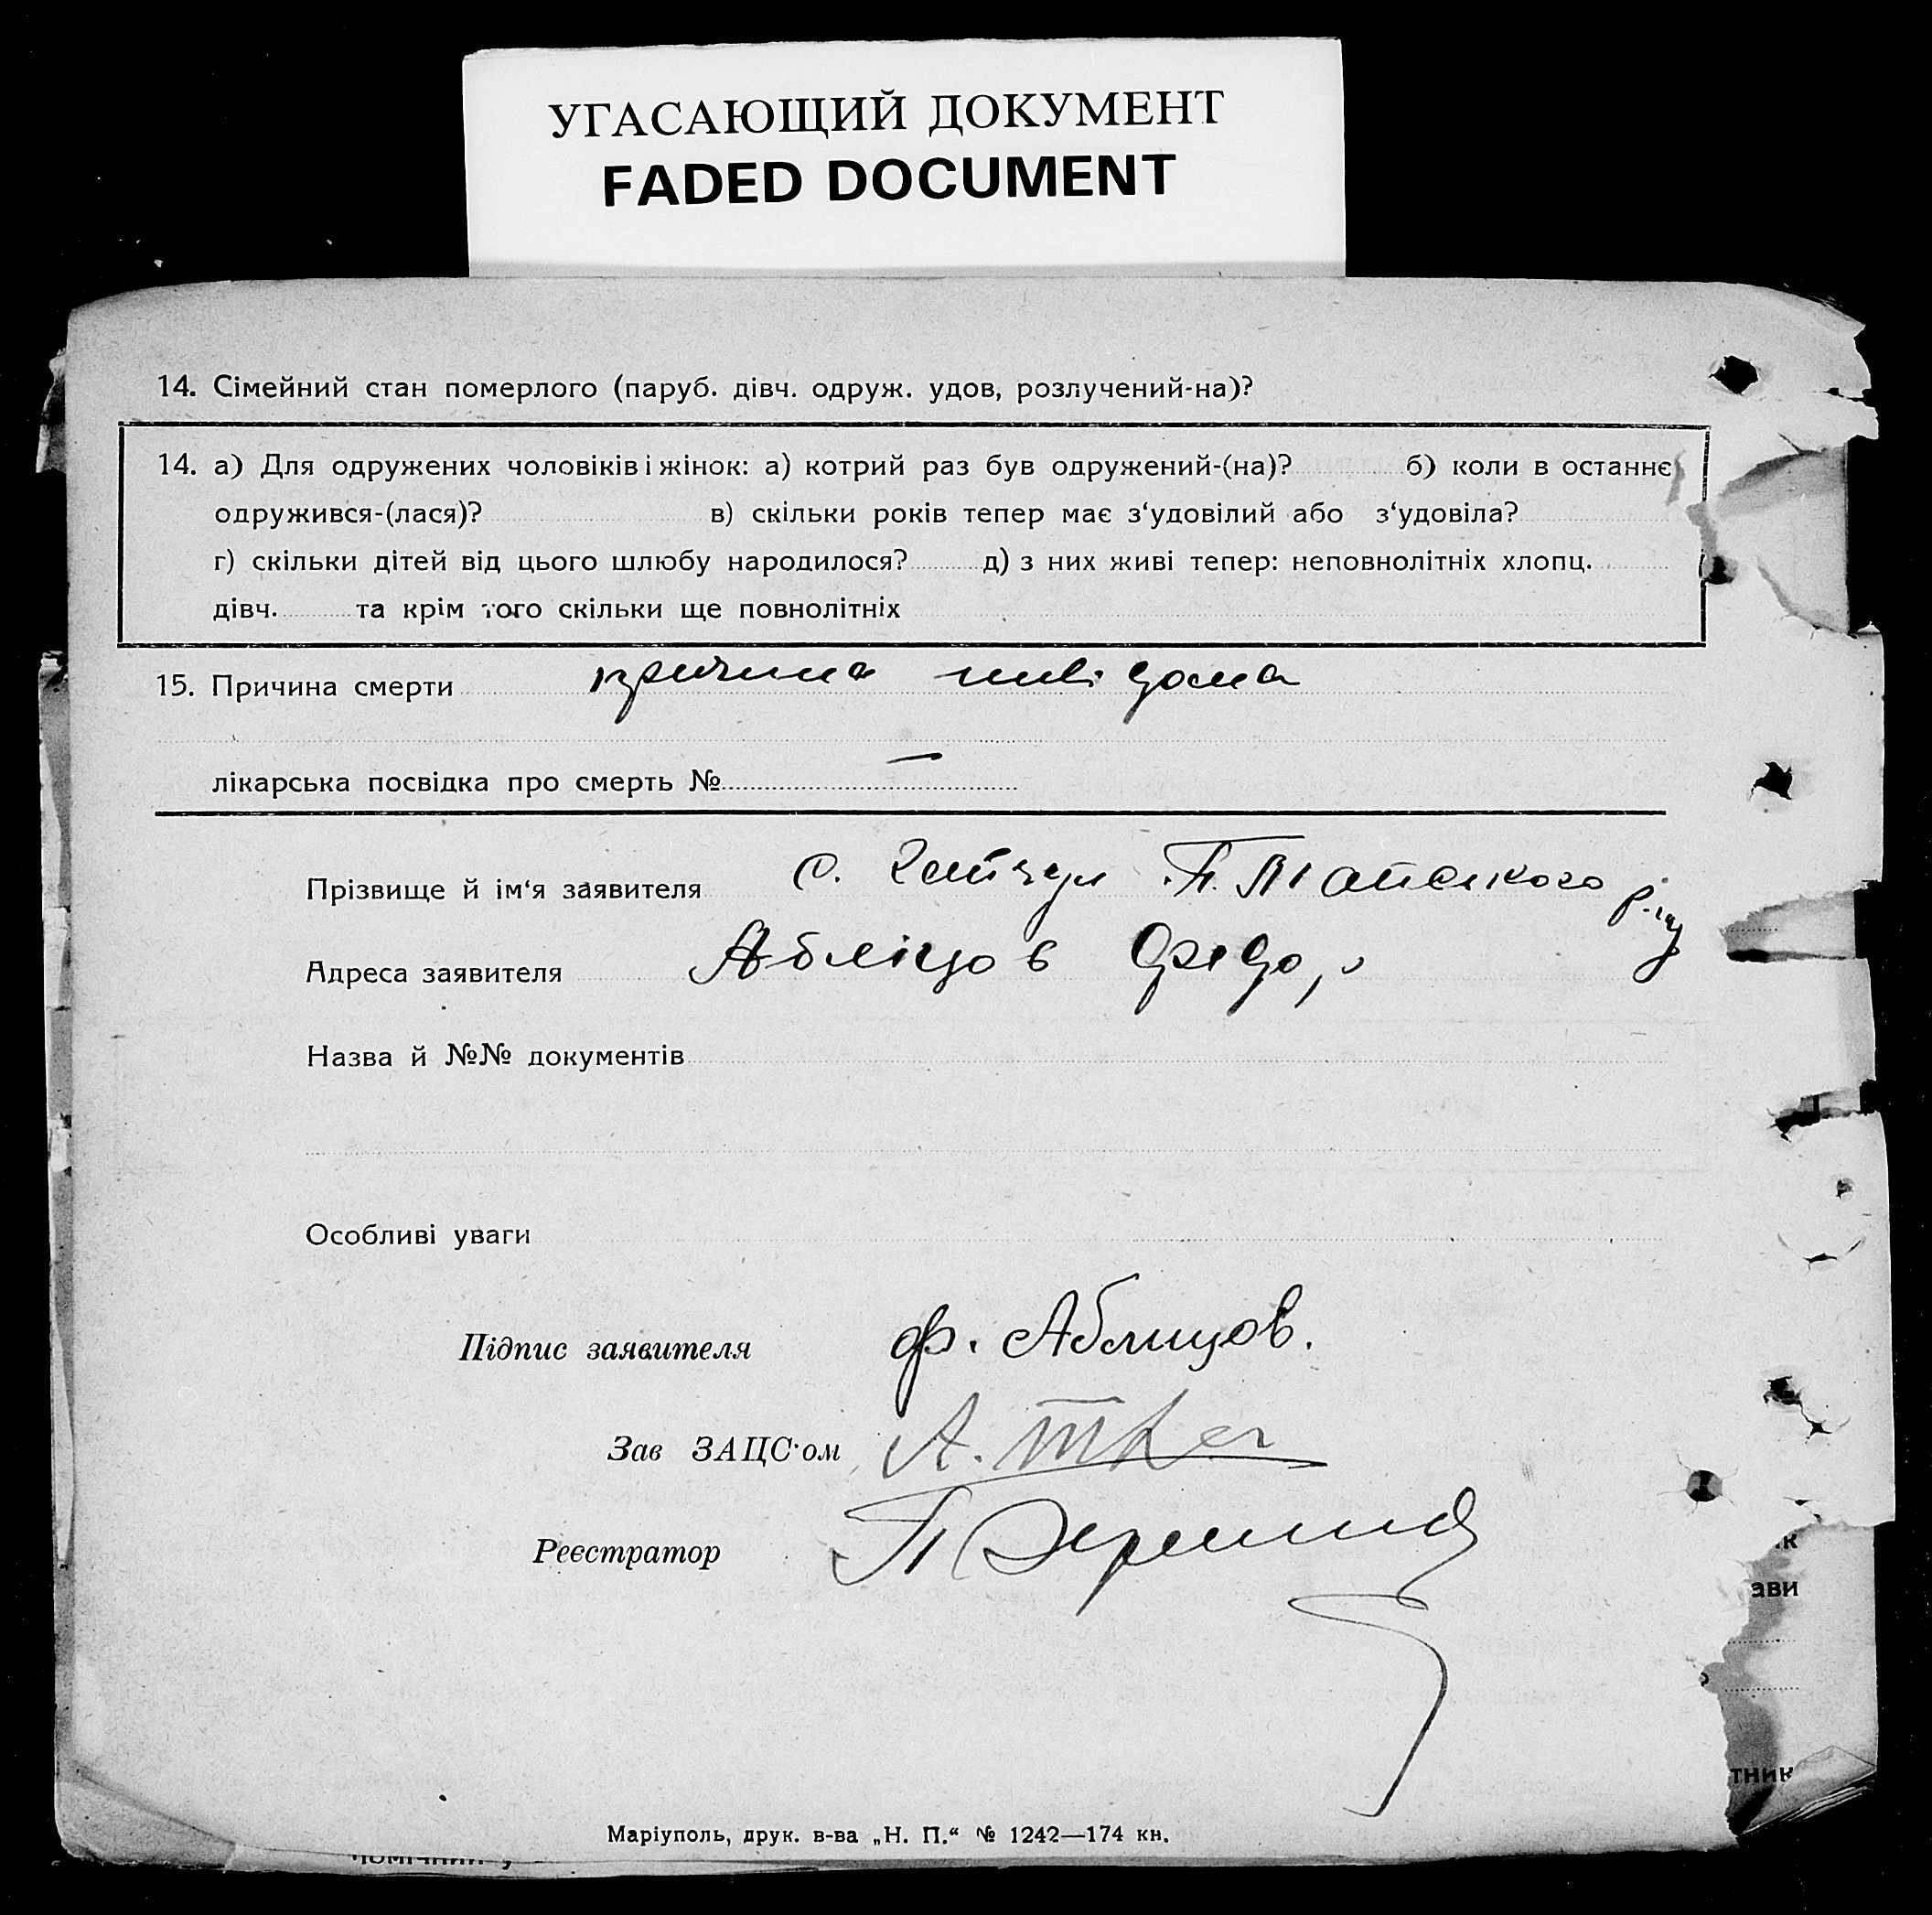 УГАСАЮЩИЙ ДОКУМЕНТ
FADED DOCUMENT
14. Сімейний стан померлого (паруб. дівч. одруж. удов, розлучений-на)?
14. а) Для одружених чоловіків і жінок: а) котрий раз був одружений-(на)? б) коли в останнє
одружився-(лася)? в) скільки років тепер має з‘удовілий або з‘удовіла?
г) скільки дітей від цього шлюбу народилося? д) з них живі тепер: неповнолітніх хлопц.
дівч. та крім того скільки ще повнолітніх
15. Причина смерти причина невідома
лікарська посвідка про смерть № —
Прізвище й ім‘я заявителя с.
Адреса заявителя Абліцов Федо
Назва й №№ документів
Особливі уваги
Підпис заявителя ф. Аблицов.
Зав ЗАЦС·ом А.
Реєстратор П
ак
ави
тник
Маріуполь, друк. в-ва „Н. П.“ № 1242—174 кн.